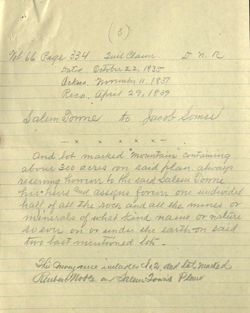 (3)
Vol 66 Page 334 Quit Claim D. N. R
Dates October 22, 1835
Ackns. November 11, 1837
Recd. April 29, 1839
Salem Towne to Jacob Souss
And lot marked Mountain containing
about 300 acres on said plan always
reserving however to the said Salem Towne
his heirs and assigns forever one undivided
half of all the rock and all the mines or
minerals of what kind name or nature
soever on or under the earth on said
two last mentioned lots.
This conveyance includes and lot marked
Reuben Noble on Salem Towne's Plans